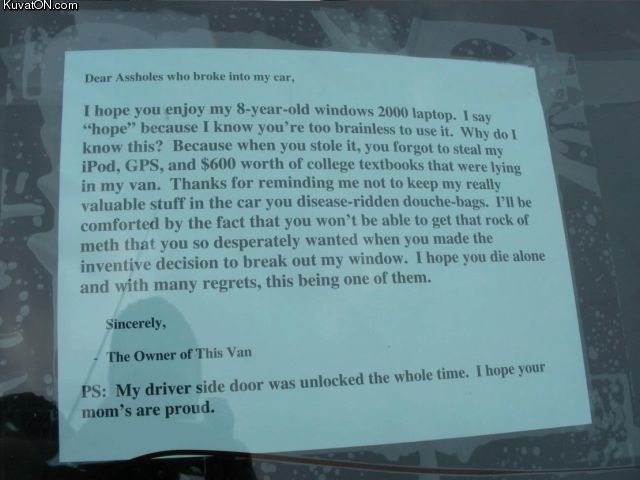 KuvatON.com
Dear Assholes who broke into my car,
I hope you enjoy my 8-year-old windows 2000 laptop. I say
“hope” because I know you’re too brainless to use it. Why do I
know this? Because when you stole it, you forgot to steal my
iPod, GPS, and $600 worth of college textbooks that were lying
in my van. Thanks for reminding me not to keep my really
valuable stuff in the car you disease-ridden douche-bags. I’ll be
comforted by the fact that you won’t be able to get that rock of
meth that you so desperately wanted when you made the
inventive decision to break out my window. I hope you die alone
and with many regrets, this being one of them.
Sincerely,
- The Owner of This Van
PS: My driver side door was unlocked the whole time. I hope your
mom’s are proud.